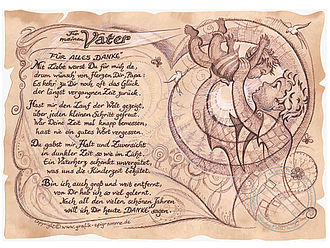 Für
meinen Vater
"FÜR ALLES DANKE"
Mit Liebe warst Du für mich da,
drum wünsch von Herzen Dir, Papa:
Es kehr zu Dir noch oft das Glück
der längst vergangnen Zeit zurück.
Hast mir den Lauf der Welt gezeigt,
über jeden kleinen Schritt gefreut.
War Deine Zeit mal knapp bemessen,
hast nie ein gutes Wort vergessen.
Du gabst mir Halt und Zuversicht
in dunkler Zeit so wie im Licht.
Ein Vaterherz schenkt unverhütet,
was uns die Kinderzeit behütet.
Bin ich auch groß und weit entfernt,
von Dir hab ich so viel gelernt.
Nach all den vielen schönen Jahren
will ich Dir heute DANKE sagen.